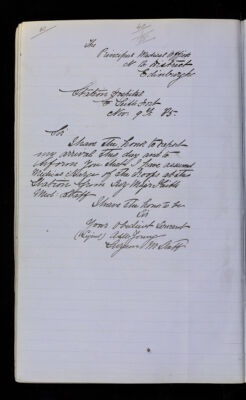 The
Principal Medical Officer
N. B. District
Edinburgh
Station Hospital
Leith Fort
Nov. 9th 85.
Sir
I have the honor to report
my arrival this day and to
inform you that I have assumed
Medical charge of the Troops at this
Station from Surg Major
Med. Staff
I have the honor to be
Sir
Your Obedient Servant
(Signed)
Surgeon M Staff